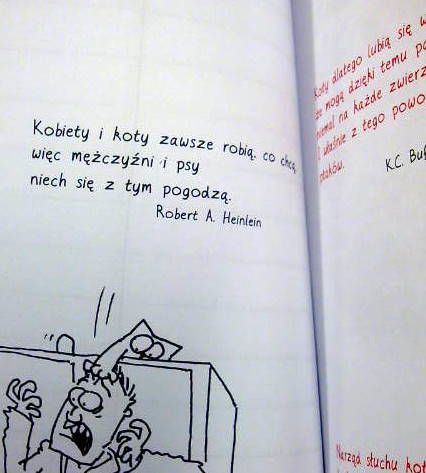 Kobiety i koty zawsze robią, co chcą,
więc mężczyźni i psy
niech się z tym pogodzą.
Robert A. Heinlein
Koty dlatego lubią się w
że mogą dzięki temu
niemal na każde
I właśnie z tego
ptaków.
K.C.
Narząd słuchu